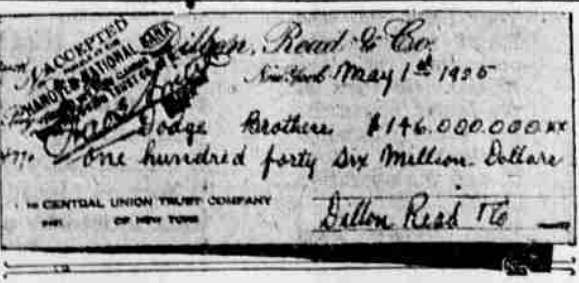 Dillon, Read & Co.
ACCEPTED
HANOVER NATIONAL BANK
New York May 1st 1925
Dodge Brothers $146.000.000xx
One hundred forty six Million Dollars
CENTRAL UNION TRUST COMPANY
OF NEW YORK
Dillon Read & Co